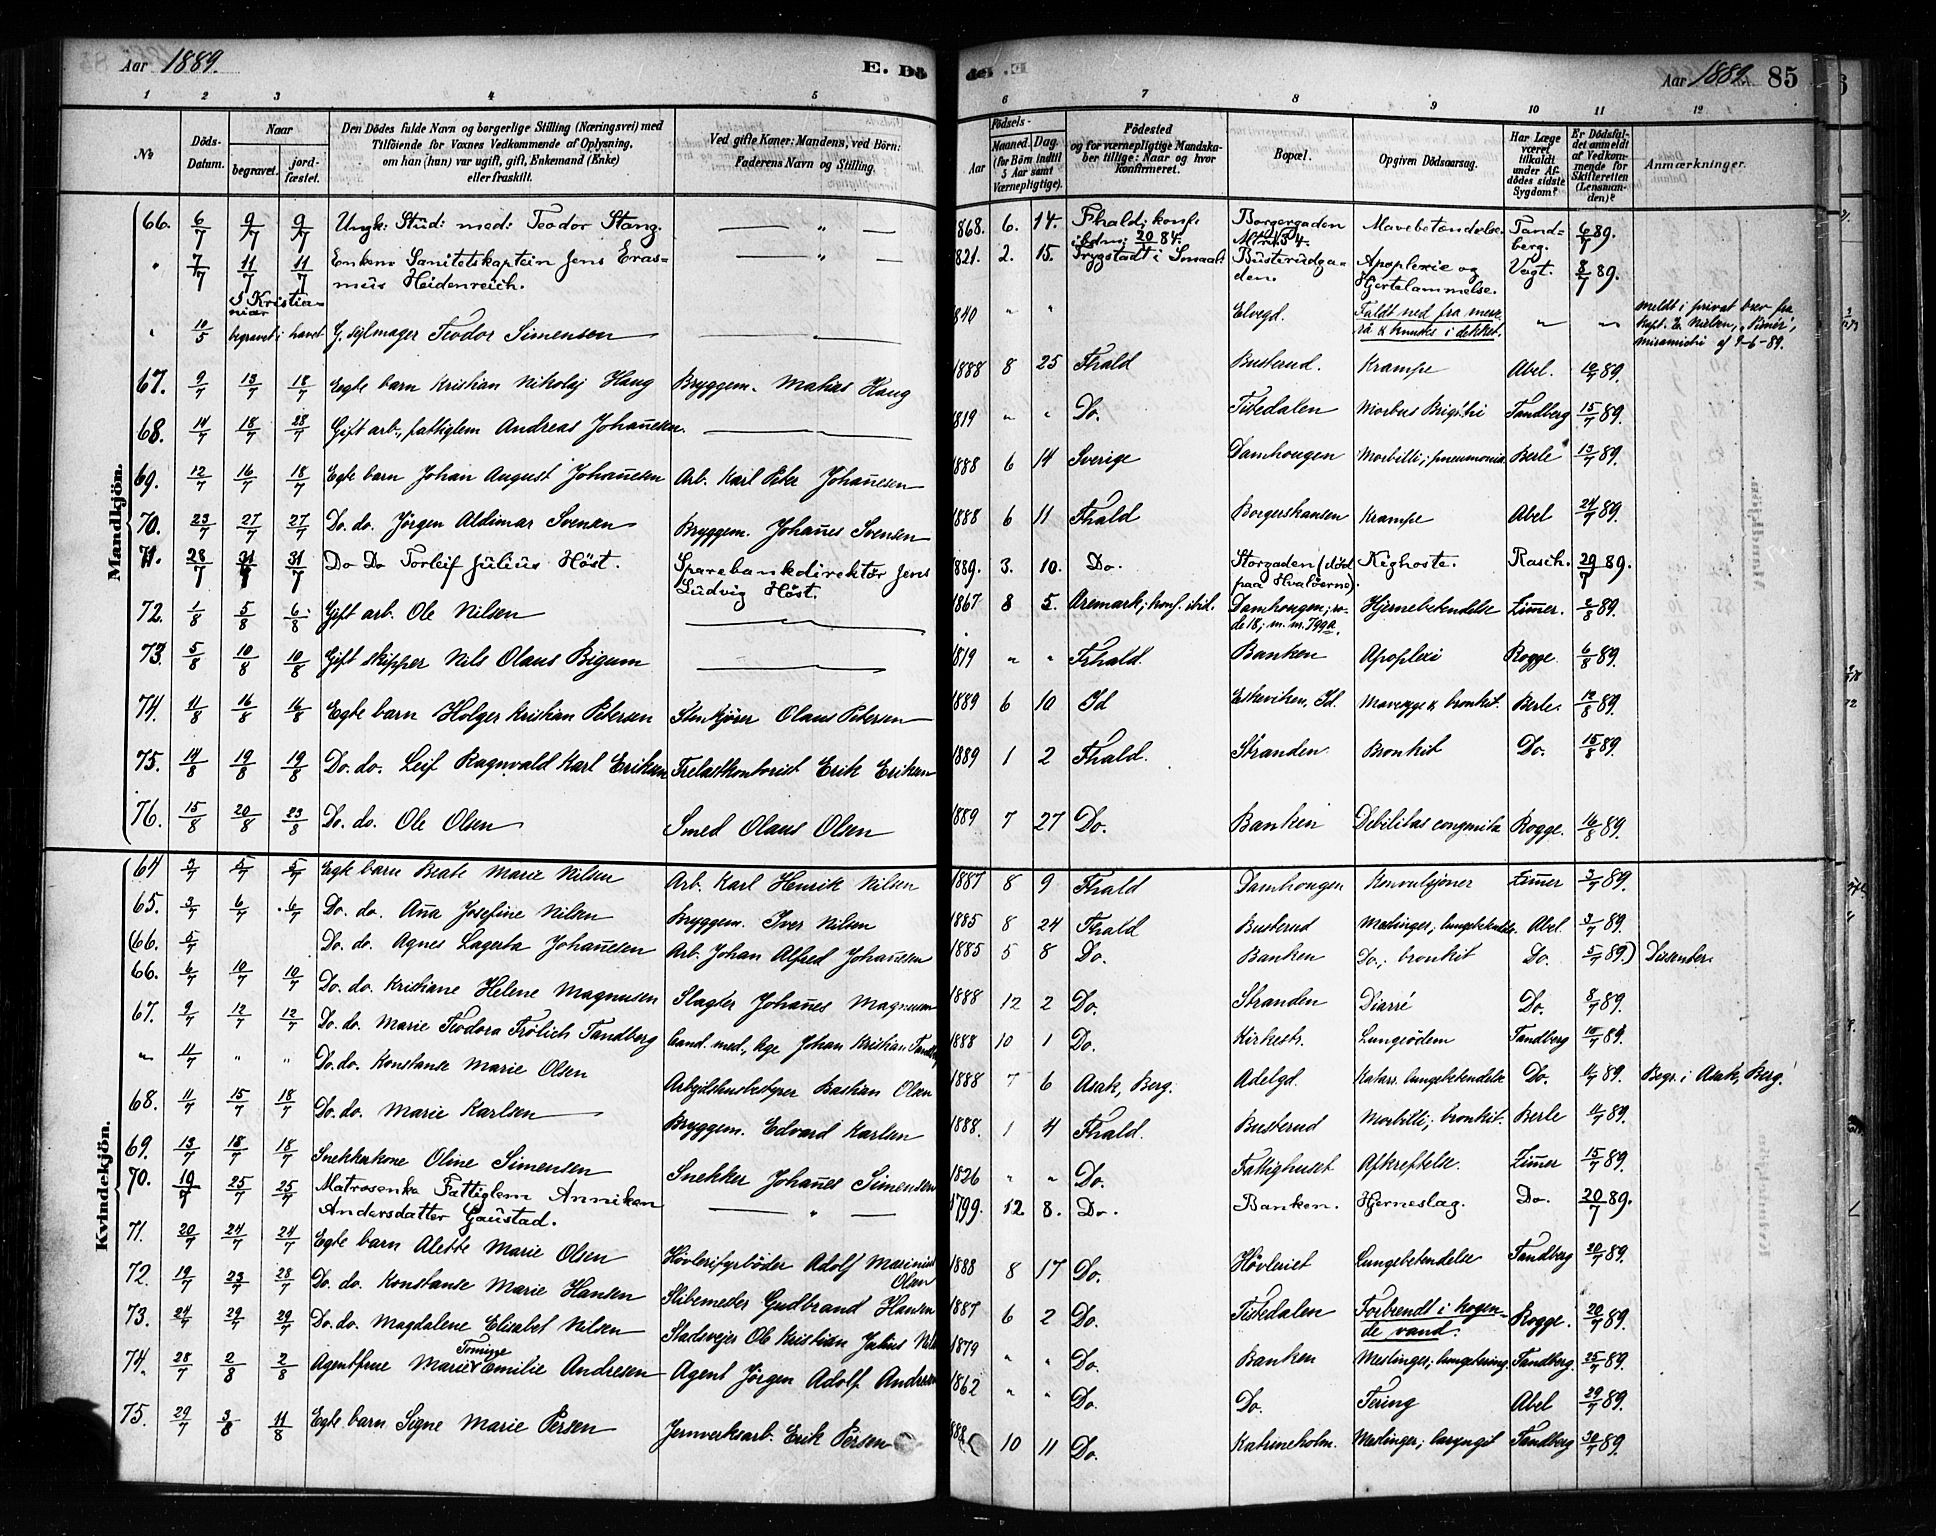 Aar 1889. E. Dö
1 2 3 4 5
No
Döds-Datum.
Naar
begravet. jord-fæstet.
Den Dödes fulde Navn og borgerlige Stilling (Næringsvei) med
Tilföiende for Voxnes Vedkommende af Oplysning,
om han (hun) var ugift, gift, Enkemand (Enke)
eller fraskilt.
Ved gifte Koner: Mandens, ved Börn:
Faderens Navn og Stilling.
Mandkjön.
66. 6/7 9/7 9/7 Ungk: Stud: med: Teodor Stang. — " —
" 7/7 11/7 11/7 Enkem Sanitetskaptein Jens Eras=
mus Heidenreich. — " —
I Kristia-
nia
" 10/5 begravet i havet G. sejlmager Teodor Simensen — " —
67. 9/7 13/7 18/7 Egte barn Kristian Nikolej Haug Bryggem. Matias Haug
68. 14/7 18/7 28/7 Gift arb., fattiglem Andreas Johannesen.
69. 12/7 16/7 18/7 Egte barn Johan August Johannesen Arb. Karl Peter Johannesen
70. 23/7 27/7 27/7 Do. do. Jörgen Aldimar Svensen Bryggem. Johannes Svensen
71. 28/7 31/7 31/7 Do Do Torleif Julius Höst. Sparebankdirektör Jens
Ludvig Höst.
72. 1/8 5/8 6/8 Gift arb. Ole Nilsen
73. 5/8 10/8 10/8 Gift skipper Nils Olaus Bigum
74. 11/8 16/8 16/8 Egte barn Holger Kristian Petersen Stenkjörer Olaus Petersen
75. 14/8 19/8 19/8 Do. do. Leif Ragnvald Karl Eriksen Trelastkontorist Erik Eriksen
76. 15/8 20/8 23/8 Do. do. Ole Olsen Smed Olaus Olsen
Kvindekjön.
64 3/7 5/7 5/7 Egte barn Beate Marie Nilsen Arb. Karl Henrik Nilsen
65. 3/7 6/7 6/7 Do. do. Anna Josefine Nilsen Bryggem. Iver Nilsen
(66. 5/7 Do. do. Agnes Lagerta Johannesen Arb. Johan Alfred Johannesen
66. 6/7 10/7 10/7 Do. do. Kristiane Helene Magnusen Slagter Johannes Magnusen
67. 9/7 12/7 12/7 Do. do. Marie Teodora Frölich Tandberg Cand. med., lege Johan Kristian Tandberg
" 11/7 " " Do. do. Konstanse Marie Olsen Arbejdshusbestyrer Bastian Olsen
68. 11/7 15/7 18/7 Do. do. Marie Karlsen Bryggem. Edvard Karlsen
69. 13/7 18/7 18/7 Snekkerkone Oline Simensen Snekker Johannes Simensen
70. 19/7 25/7 25/7 Matrosenke Fattiglem Anniken
Andersdatter Gaustad. — " —
71. 20/7 24/7 24/7 Egte barn Alette Marie Olsen Hövlerifyrböder Adolf Marinius
Olsen
72. 19/7 23/7 28/7 Do. do. Konstanse Marie Hansen Slibemester Gudbrand Hansen
73. 24/7 29/7 29/7 Do. do. Magdalene Elisabet Nilsen Stadsvejer Ole Kristian Julius Nilsen
74. 28/7 2/8 2/8 Agentfrue Marie Tomine Emilie Andresen Agent Jörgen Adolf Andresen
75. 29/7 3/8 11/8 Egte barn Signe Marie Persen Jernverksarb. Erik Persen
Aar 1889. 85
6 7 8 9 10 11 12
Födsels-
Aar Maaned. Dag.
(for Börn indtil
5 Aar samt
Værnepligtige).
Födested
og for værnepligtige Mandska-
ber tillige: Naar og hvor
konfirmeret.
Bopæl.
Opgiven Dödsaarsag.
Har Læge
været
tilkaldt
under Af-
dödes sidste
Sygdom?
Er Dödsfal-
det anmeldt
af Vedkom-
mende for
Skifteretten
(Lensman-
den)?
Anmærkninger.
1868. 6. 14. Fhald; konf. Borgergaden Mavebetændelse. Tand= 6/7 89.
ibdm: 20/84. Mtr: 134. berg.
1821. 2. 15. Trygstadt i Smaal: Busterudga= Apoplexie og Vogt. 8/7 89.
den. Hjertelammelse.
1840 " " Elvegd. Faldt ned fra merse- " " meldt i privat brev fra
rå & knustes i dekket. kapt. E. Nielsen,
miramichi af 9-6-89.
1888 8 25 Fhald Busterud. Krampe Abel. 10/7 89.
1819 " " Do. Tistedalen Morbus Brigthi Tandberg 15/7 89.
1888 6 14 Sverige Damhougen Morbilli; pneumonia Berle 13/7 89.
1888 6 11 Fhald Borgershausen Krampe Abel 24/7 89.
1889. 3. 10. Do. Storgaden (död Kighoste. Rasch. 29/7 89.
paa Hvalöerne).
1867 8 5. Aremark; konf. ibid. Damhougen; ro- Hjernebetendelse Zimmer. 2/8 89.
de 18; m. m. 799a.
1819 " " Frhald. Banken Apoplexi Rogge. 6/8 89.
1889 6 10 Id Eskeviken, Id. Mavesyge & bronkit. Berle. 12/8 89.
1889 1 2 Fhald. Stranden. Bronkit Do. 15/8 89.
1889 7 27 Do. Banken Debilitas congenita Rogge. 16/8 89.
1887 8 9 Fhald Damhougen Konvulsjoner Zimmer 3/7 89.
1885 8 24 Fhald Busterud Meslinger; lungebetendelse. Abel 3/7 89.
1885 5 8 Do. Banken Do.; bronkit Do. 5/7 89.) Dissenter.
1888 12 2 Do. Stranden Diarré Do. 8/7 89.
1888 10 1 Do. Kirkestr. Lungeödem Tandberg 10/7 89.
1888 7 6 Asak, Berg. Adelgd. Katarr. lungebetendelse Do. 11/7 89. Begr. i Asak, Berg.
1888. 1 4 Fhald. Busterud Morbilli; bronkit. Berle 11/7 89.
1826 " " Do. Fattighuset Afkreftelse. Zimmer 15/7 89.
1799. 12 8. Do. Banken. Hjerneslag. Do. 20/7 89.
1888 8 17 Do. Hövleriet Lungebetendelse Tandberg 20/7 89.
1887 6 2 Do. Tistedalen Forbrendt i kogen- Rogge. 20/7 89.
de vand.
1879 " " Do. Banken Meslinger; lungetering. Tandberg. 25/7 89.
1862 " " Do. Do. Tering Abel 29/7 89.
1888 10 11 Do. Katrineholm. Meslinger; laryngit Tandberg 30/7 89.